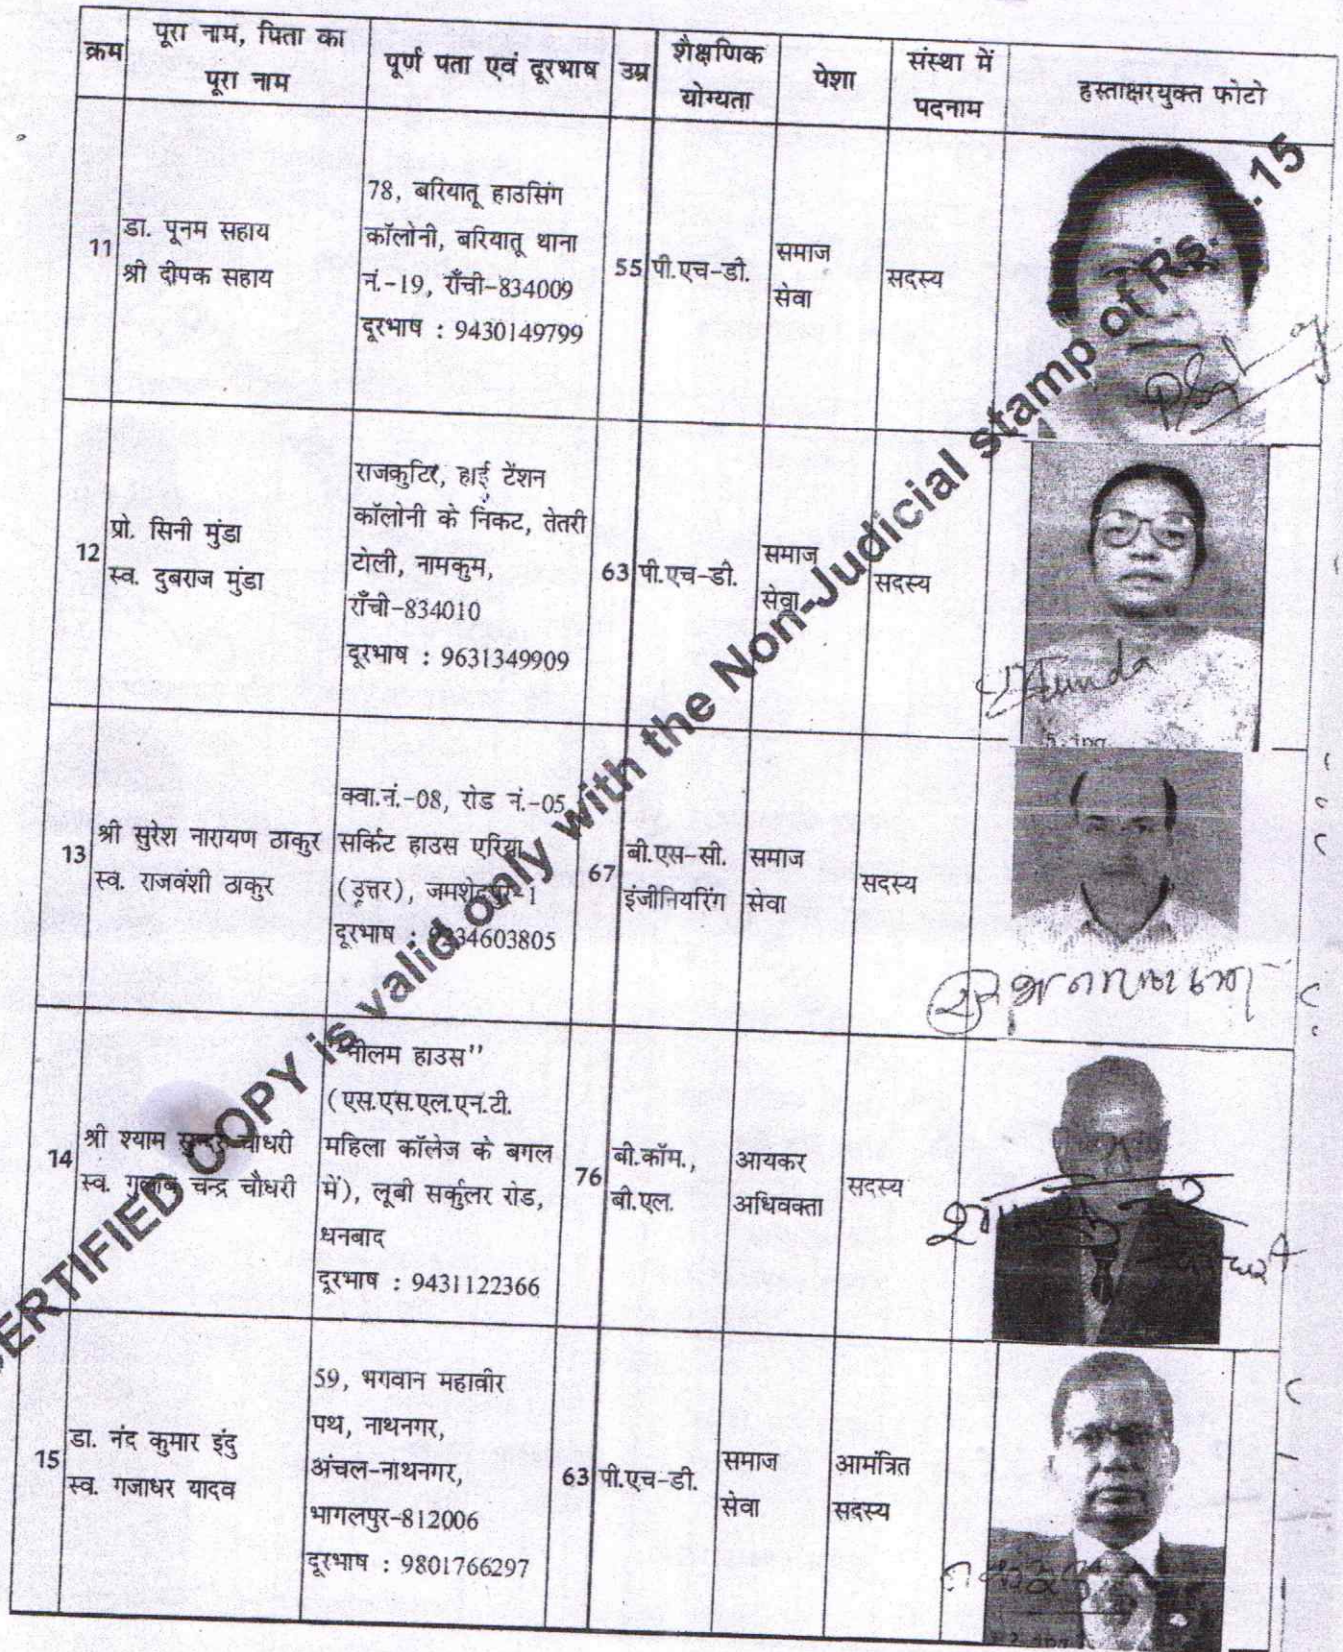 क्रम
पूरा नाम, पिता का
पूरा नाम
पूर्ण पता एवं दूरभाष
उम्र
शैक्षणिक
योग्यता
पेशा
संस्था में
पदनाम
हस्ताक्षरयुक्त फोटो
11
डा. पूनम सहाय
श्री दीपक सहाय
78, बरियातू हाउसिंग
कॉलोनी, बरियातू थाना
नं.-19, राँची-834009
दूरभाष : 9430149799
55
पी.एच-डी.
समाज
सेवा
सदस्य
12
प्रो. सिनी मुंडा
स्व. दुबराज मुंडा
राजकुटिर, हाई टेंशन
कॉलोनी के निकट, तेतरी
टोली, नामकुम,
राँची-834010
दूरभाष : 9631349909
63
पी.एच-डी.
समाज
सेवा
सदस्य
Munda
13
श्री सुरेश नारायण ठाकुर
स्व. राजवंशी ठाकुर
क्वा.नं.-08, रोड नं.-05,
सर्किट हाउस एरिया
(उत्तर), जमशेदपुर-1
दूरभाष : 9334603805
67
बी.एस-सी.
इंजीनियरिंग
समाज
सेवा
सदस्य
14
श्री श्याम सुन्दर चौधरी
स्व. गुलाब चन्द्र चौधरी
"नीलम हाउस''
(एस.एस.एल.एन.टी.
महिला कॉलेज के बगल
में), लूबी सर्कुलर रोड,
धनबाद
दूरभाष : 9431122366
76
बी.कॉम.,
बी.एल.
आयकर
अधिवक्ता
सदस्य
15
डा. नंद कुमार इंदु
स्व. गजाधर यादव
59, भगवान महावीर
पथ, नाथनगर,
अंचल-नाथनगर,
भागलपुर-812006
दूरभाष : 9801766297
63
पी.एच-डी.
समाज
सेवा
आमंत्रित
सदस्य
CERTIFIED COPY is valid only with the Non-Judicial stamp of Rs. 15